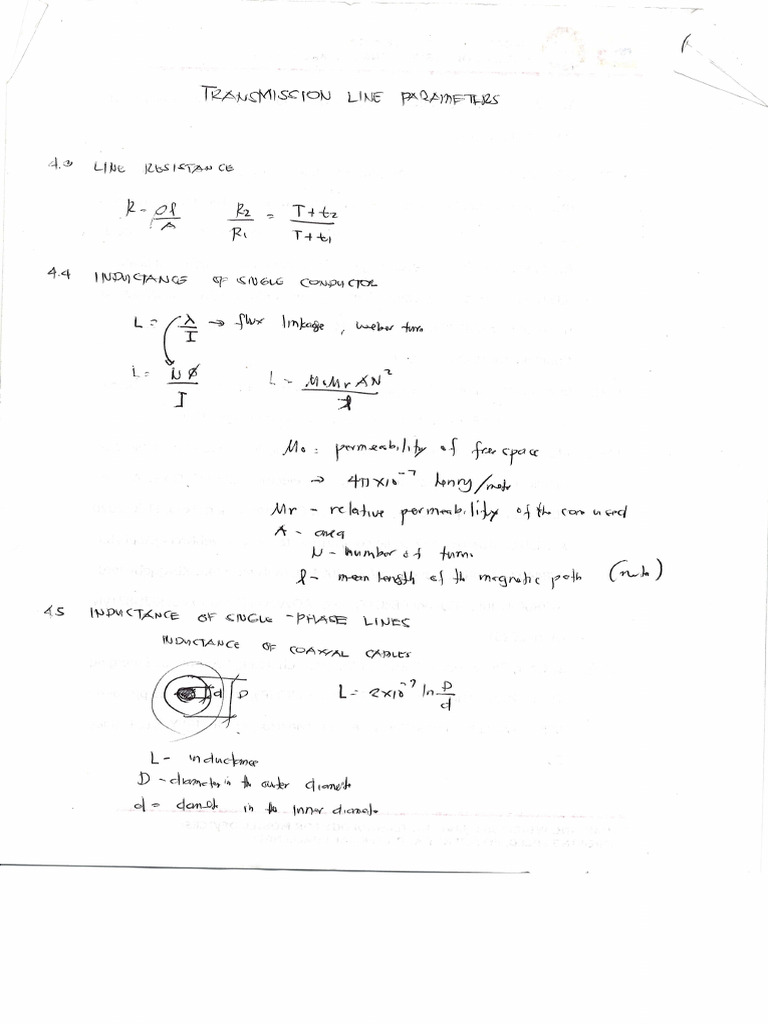 TRANSMISSION LINE PARAMETERS
4.3 LINE RESISTANCE
R = ρl/A    R2/R1 = T+t2/T+t1
4.4 INDUCTANCE OF SINGLE CONDUCTOR
L = λ/I → flux linkage, weber turn
L = NΦ/I    L = μoμr AN²/l
μo: permeability of free space
→ 4π×10⁻⁷ henry/meter
μr - relative permeability of the core used
A - area
N - number of turns
l - mean length of the magnetic path
4.5 INDUCTANCE OF SINGLE-PHASE LINES
INDUCTANCE OF COAXIAL CABLES
d D    L = 2×10⁻⁷ ln D/d
L - inductance
D - diameter in the outer diameter
d = diameter in the inner diameter